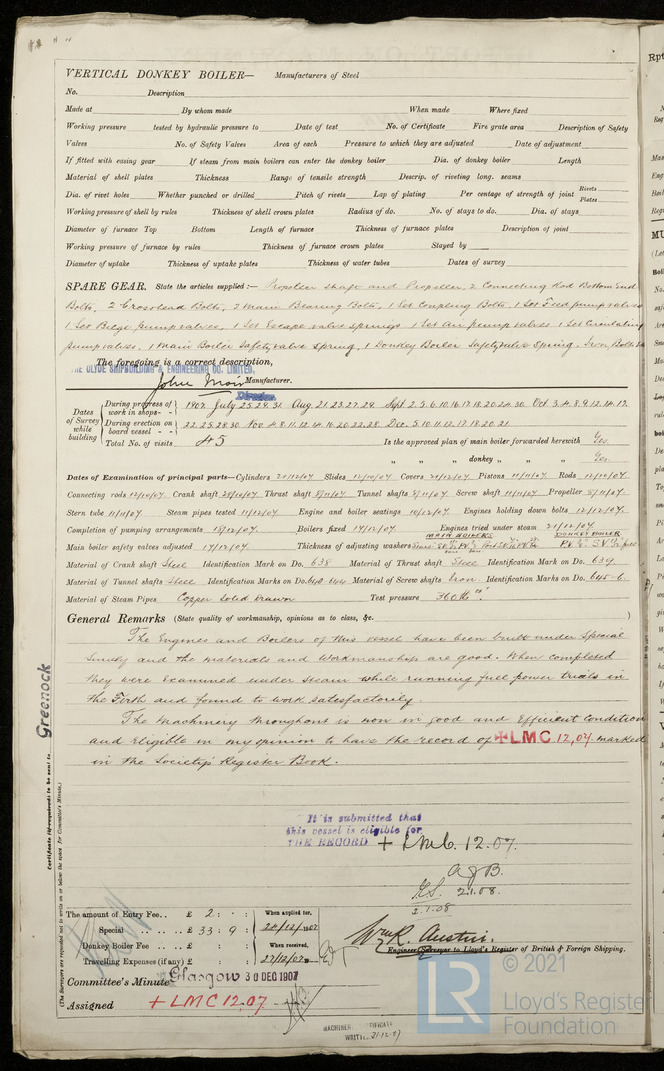 VERTICAL DONKEY BOILER— Manufacturers of Steel
No. Description
Made at By whom made When made Where fixed
Working pressure tested by hydraulic pressure to Date of test No. of Certificate Fire grate area Description of Safety
Valves No. of Safety Valves Area of each Pressure to which they are adjusted Date of adjustment
If fitted with easing gear If steam from main boilers can enter the donkey boiler Dia. of donkey boiler Length
Material of shell plates Thickness Range of tensile strength Descrip. of riveting long. seams
Dia. of rivet holes Whether punched or drilled Pitch of rivets Lap of plating Per centage of strength of joint Rivets Plates
Working pressure of shell by rules Thickness of shell crown plates Radius of do. No. of stays to do. Dia. of stays
Diameter of furnace Top Bottom Length of furnace Thickness of furnace plates Description of joint
Working pressure of furnace by rules Thickness of furnace crown plates Stayed by
Diameter of uptake Thickness of uptake plates Thickness of water tubes Dates of survey
SPARE GEAR. State the articles supplied:— Propeller Shaft and Propeller, 2 Connecting Rod Bottom End
Bolts, 2 Crosshead Bolts, 2 Main Bearing Bolts, 1 Set Coupling Bolts, 1 Set Feed pump valves
1 Set Bilge pump valves, 1 Set Escape valve springs 1 Set air pump valves 1 Set Circulating
pump valves, 1 Main Boiler Safety valve Spring, 1 Donkey Boiler Safety valve Spring. Iron, Bolts &c
The foregoing is a correct description,
THE CLYDE SHIPBUILDING & ENGINEERING CO. LIMITED,
John Moir Manufacturer.
Director.
Dates of Survey while building
During progress of work in shops- - 1907. July 25.29.31. Aug. 21.23.27.29. Sept 2.5.6.10.16.17.18.20.24.30. Oct 3.4.8.9.12.14.17.
During erection on board vessel - - 22.25.28.30. Nov 4.8.11.12.14.16.20.22.28. Dec. 5.10.11.12.17.18.20.21.
Total No. of visits 45 Is the approved plan of main boiler forwarded herewith Yes.
" " " donkey " " " Yes.
Dates of Examination of principal parts—Cylinders Slides 12/10/07 Covers Pistons 11/11/07 Rods 12/10/07
Connecting rods 12/10/07 Crank shaft Thrust shaft Tunnel shafts Screw shaft 11/11/07 Propeller
Stern tube 11/11/07 Steam pipes tested 11/12/07 Engine and boiler seatings 10/12/07 Engines holding down bolts 12/12/07
Completion of pumping arrangements 18/12/07 Boilers fixed 17/12/07 Engines tried under steam 21/12/07
Main boiler safety valves adjusted 17/12/07 Thickness of adjusting washers MAIN BOILERS DONKEY BOILER
Material of Crank shaft Steel Identification Mark on Do. 638 Material of Thrust shaft Steel Identification Mark on Do. 639
Material of Tunnel shafts Steel Identification Marks on Do. 640 644 Material of Screw shafts Iron Identification Marks on Do. 645-6.
Material of Steam Pipes Copper Solid Drawn Test pressure 360 lbs □".
General Remarks (State quality of workmanship, opinions as to class, &c.
The Engines and Boilers of this vessel have been built under Special
Survey and the materials and workmanship are good. When completed
they were examined under steam while running full power trials in
the Firth and found to work satisfactorily.
The Machinery throughout is now in good and efficient condition
and eligible in my opinion to have the record of +LMC. 12,07. marked
in the Society's Register Book.
Greenock
Certificate (if required) to be sent to
(The Surveyors are requested not to write on or below the space for Committee's Minute.)
It is submitted that
this vessel is eligible for
THE RECORD + LMC. 12.07.
2.1.08.
2.1.08
The amount of Entry Fee.. £ 2 : - : When applied for,
Special .. .. .. £ 33 : 9 :
Donkey Boiler Fee .. .. £ : : When received,
Travelling Expenses (if any) £ : :
Wm R. Austin.
Engineer Surveyor to Lloyd's Register of British & Foreign Shipping.
Committee's Minute Glasgow 30 DEC 1907
Assigned + LMC 12,07
MACHINERY CERTIFICATE
WRITTEN 31-12-07
© 2021
LR
Lloyd's Register
Foundation